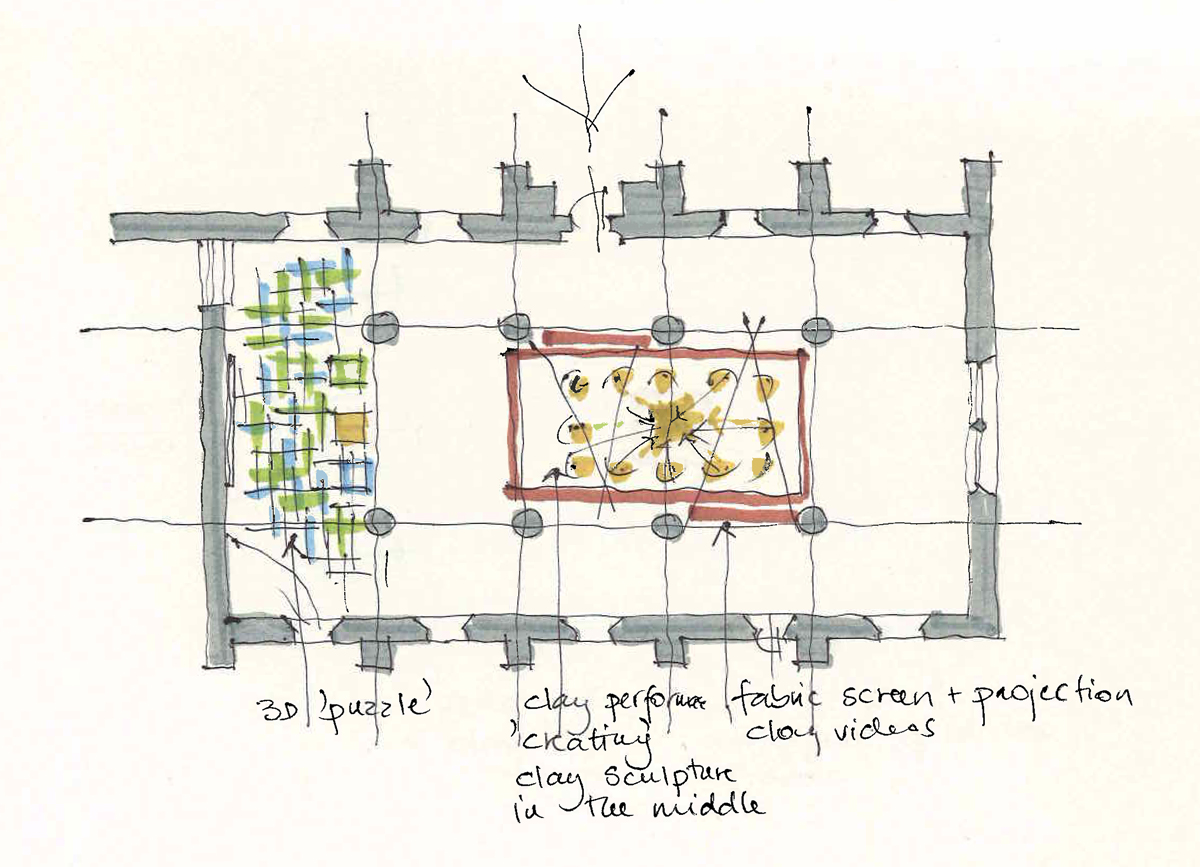 3D 'puzzle'
clay performance
'creating'
clay sculpture
in the middle
fabric screen + projection
clay videos